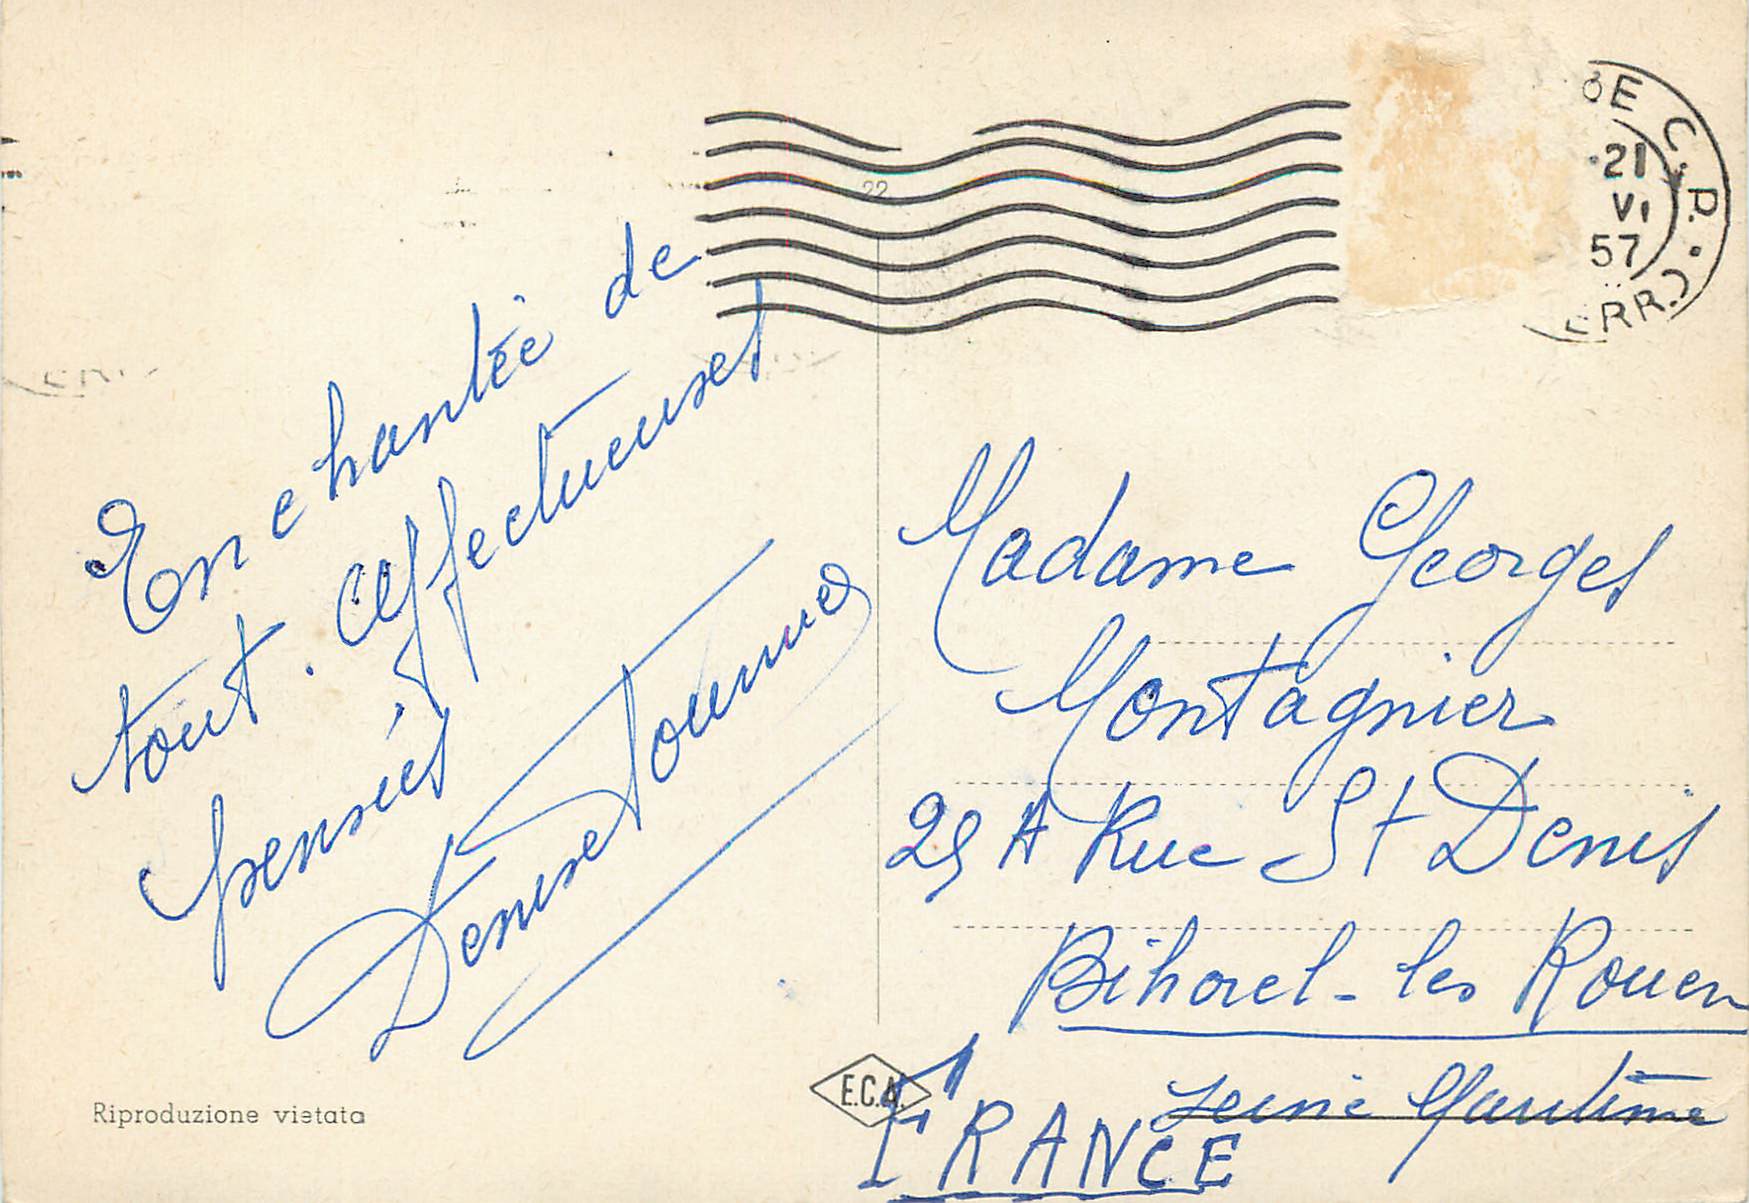 Enchantée de
tout. Affectueuses
pensées
Denise
22
3E C.P.
21
VI
57
ERR.)
Madame Georges
Montagnier
29 A Rue St Denis
Bihorel-les Rouen
Seine Maritime
FRANCE
E.C.A.
Riproduzione vietata